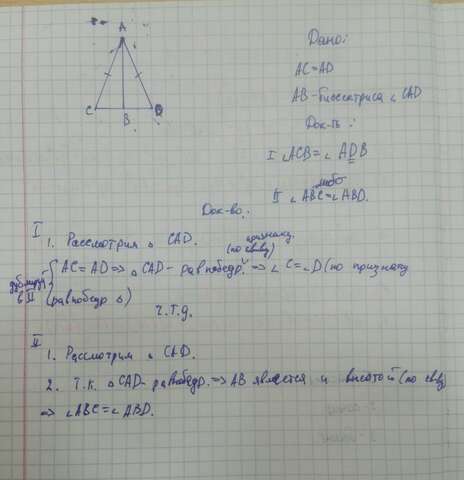 A
C
B
D
Дано:
AC=AD
AB-биссектриса ∠ CAD
Док-ть:
I ∠ACB=∠ADB
II ∠ABC=∠ABD.
Док-во:
I
1. Рассмотрим △ CAD.
признаку
(по св-ву)
AC=AD⇒△CAD- равнобедр.⇒∠C=∠D(по признаку
равнобедр △)
в II
ч.т.д.
II
1. Рассмотрим △ CAD.
2. Т.к. △CAD- равнобедр.⇒AB является и высотой(по св-ву)
⇒∠ABC=∠ABD.